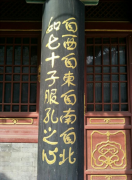 自西自東自南自北
如七十子服孔子之心